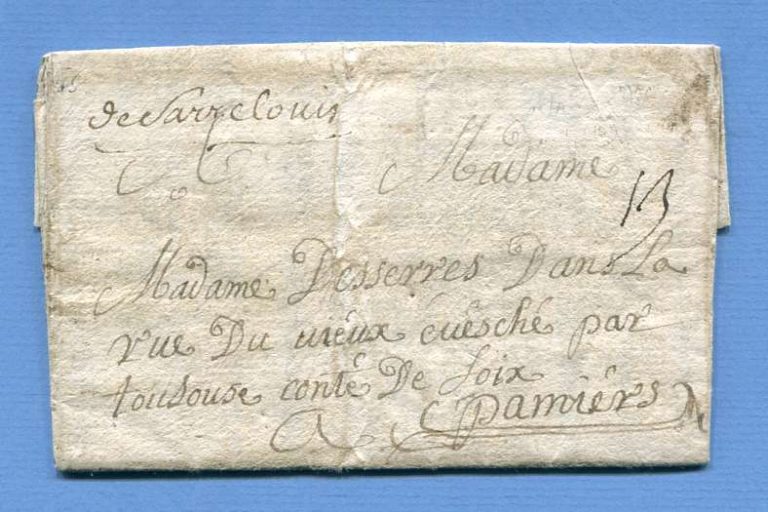 de Sarrelouis
Madame
13
Madame Desserres Dans La
rue Du vieux évesché par
toulouse conté De foix
A Pamiérs